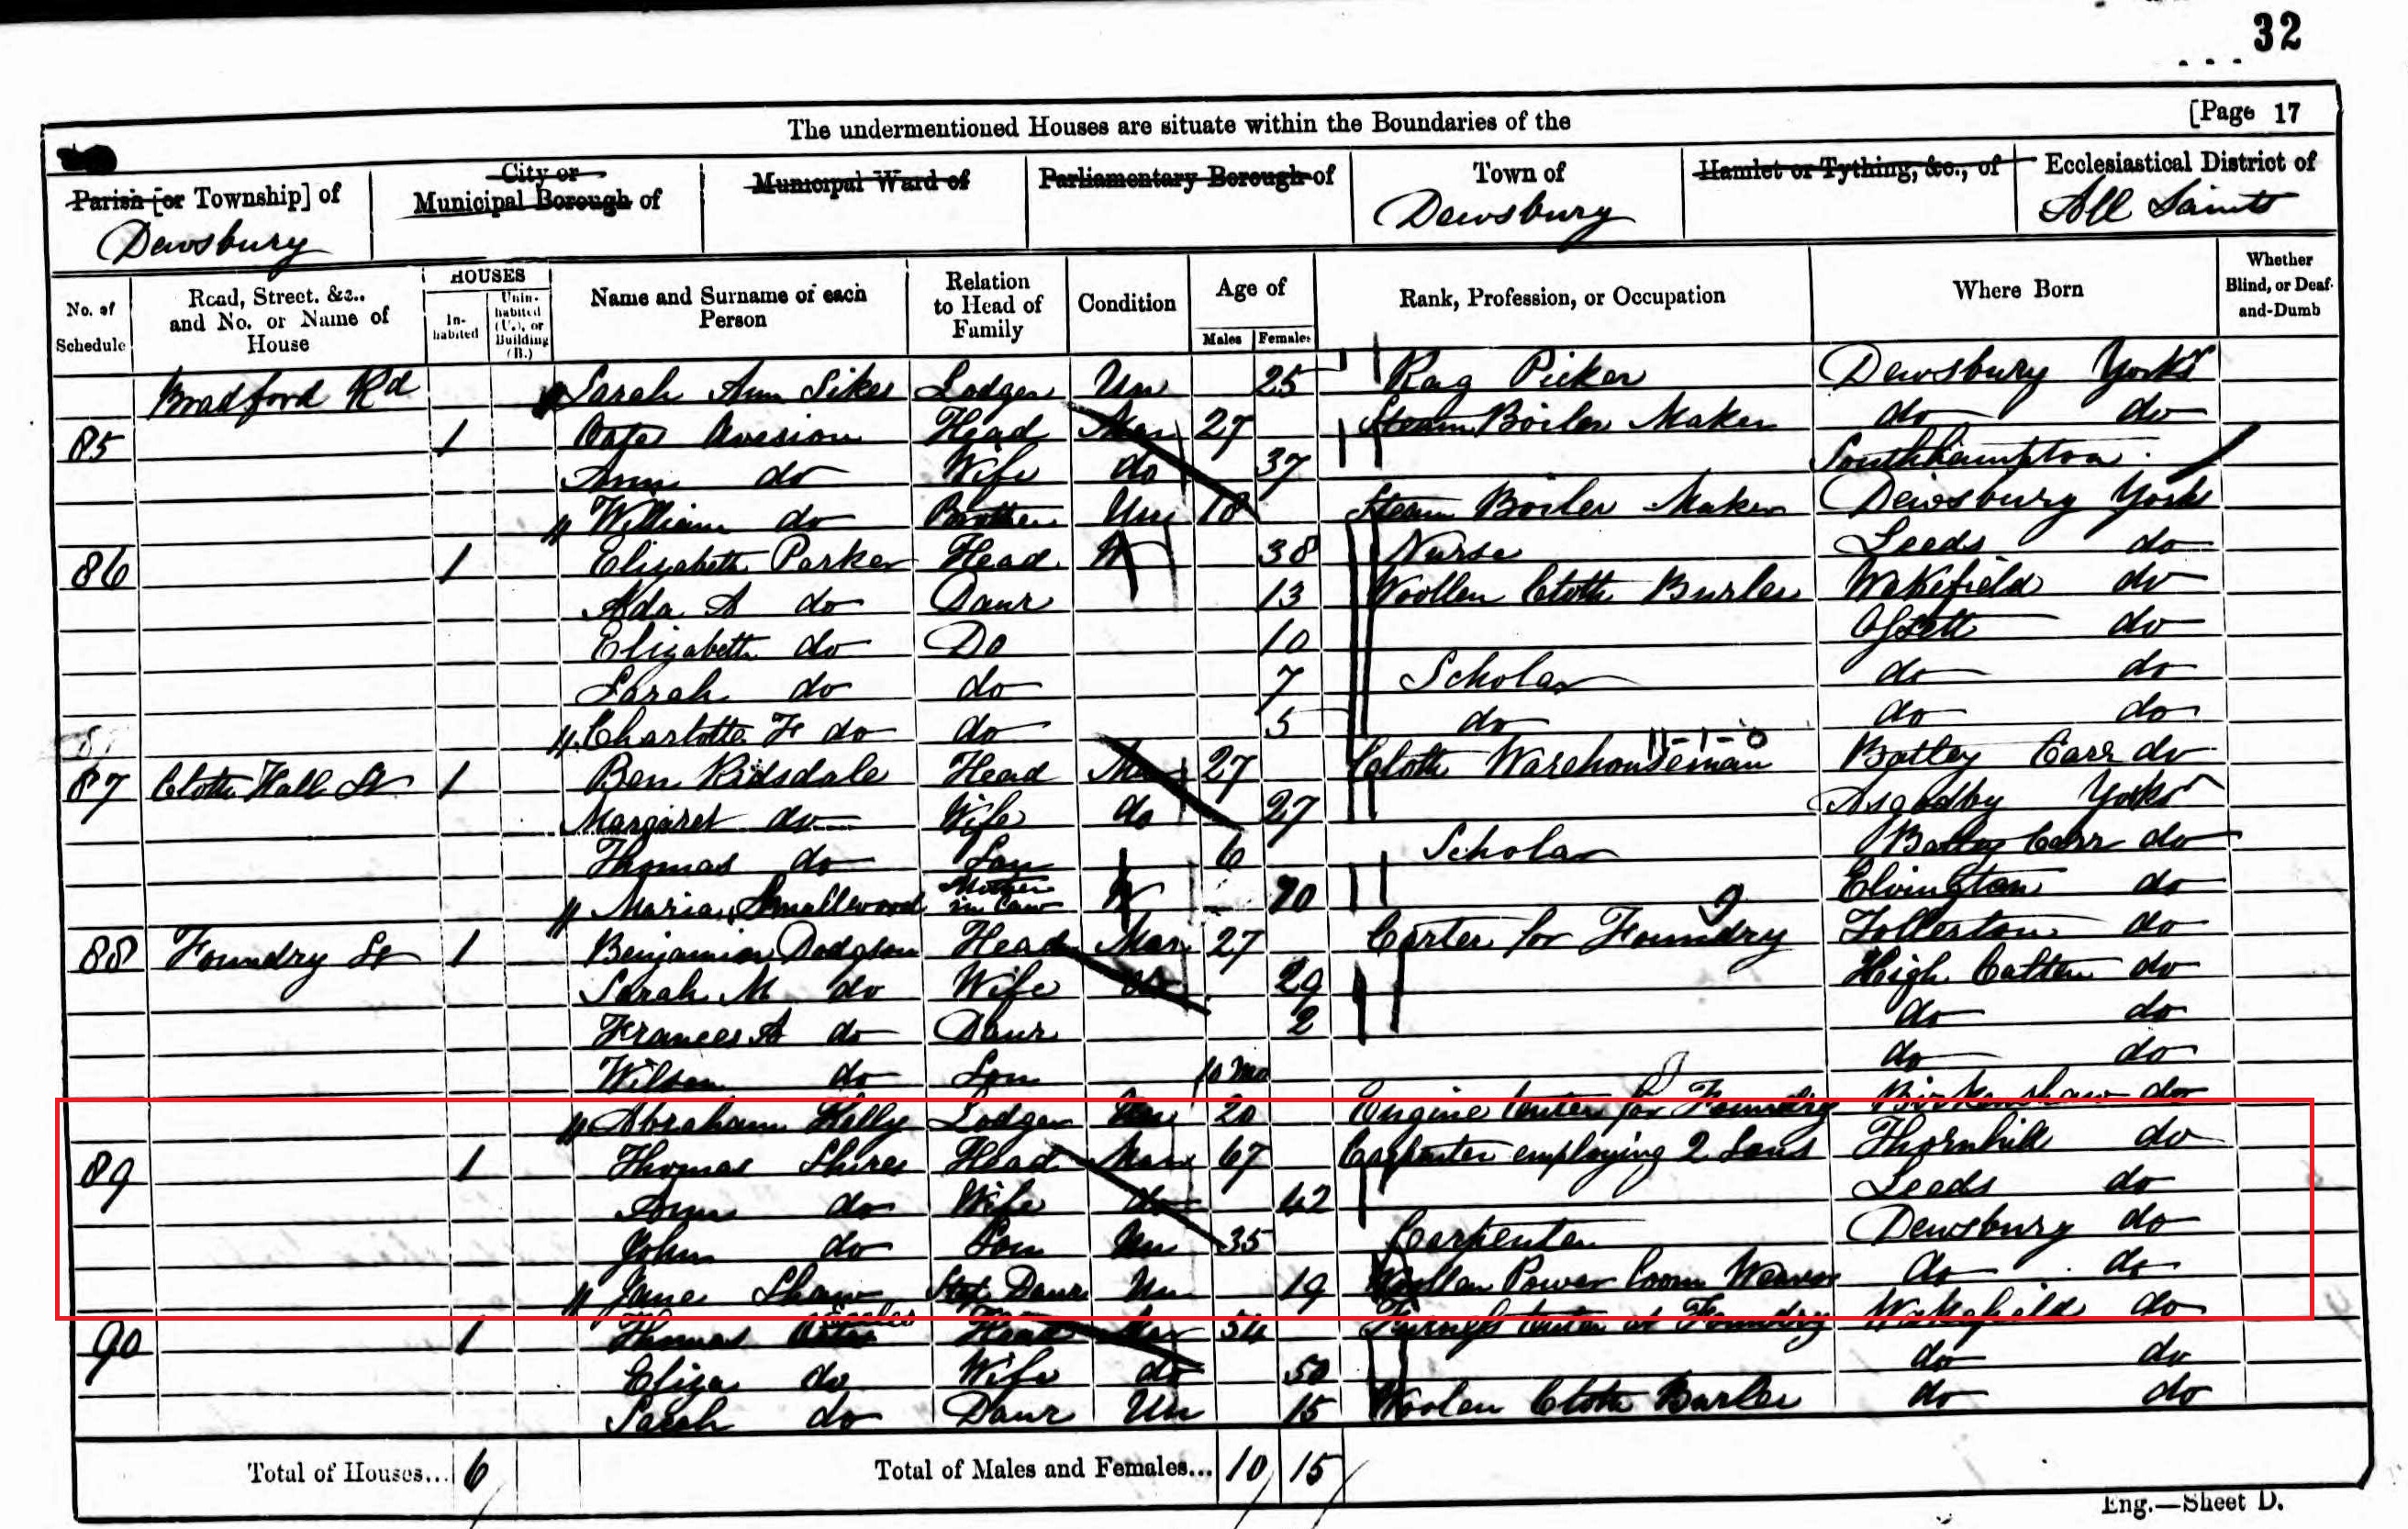 32
The undermentioned Houses are situate within the Boundaries of the [Page 17
Parish [or Township] of City or Municipal Borough of Municipal Ward of Parliamentary Borough of Town of Hamlet or Tything, &c., of Ecclesiastical District of
Dewsbury Dewsbury All Saints
No. of Schedule Road, Street, &c., and No. or Name of House HOUSES Inhabited Uninhabited (U.), or Building (B.) Name and Surname of each Person Relation to Head of Family Condition Age of Males Females Rank, Profession, or Occupation Where Born Whether Blind, or Deaf-and-Dumb
Bradford Rd Sarah Ann Sikes Lodger Un 25 Rag Picker Dewsbury Yorks
85 1 Head Mar 27 Steam Boiler Maker do do
Ann do Wife do 37 Southhampton
William do Brother Un 18 Steam Boiler Maker Dewsbury Yorks
86 1 Elizabeth Parker Head W 38 Nurse Leeds do
Ada A do Daur 13 Woollen Cloth Burler Wakefield do
Elizabeth do Do 10 Ossett do
Sarah do do 7 Scholar do do
Charlotte F do do 5 do do do
11-1-0
87 Cloth Hall St 1 Ben Ridsdale Head Mar 27 Cloth Warehouseman Batley Carr do
Margaret do Wife do 27 Yorks
Thomas do Son 6 Scholar Batley Carr do
Maria Smallwood Mother in Law W 70 Elvington do
9
88 Foundry St 1 Benjamin Dodgson Head Mar 27 Carter for Foundry Tollerton do
Sarah M do Wife do 29 High Catton do
Frances A do Daur 2 do do
Wilson do Son 10 Mo do do
Abraham Kelly Lodger Un 20 Engine tenter for Foundry Birkenshaw do
89 1 Thomas Shires Head Mar 67 Carpenter employing 2 Sons Thornhill do
Ann do Wife do 42 Leeds do
John do Son Un 35 Carpenter Dewsbury do
Jane Shaw Step Daur Un 19 Woollen Power Loom Weaver do do
90 1 Thomas Head Mar 54 tenter at Foundry Wakefield do
Eliza do Wife do 50 do do
Sarah do Daur Un 15 Woolen Cloth Burler do do
Total of Houses... 6 Total of Males and Females... 10 15
Eng.—Sheet D.